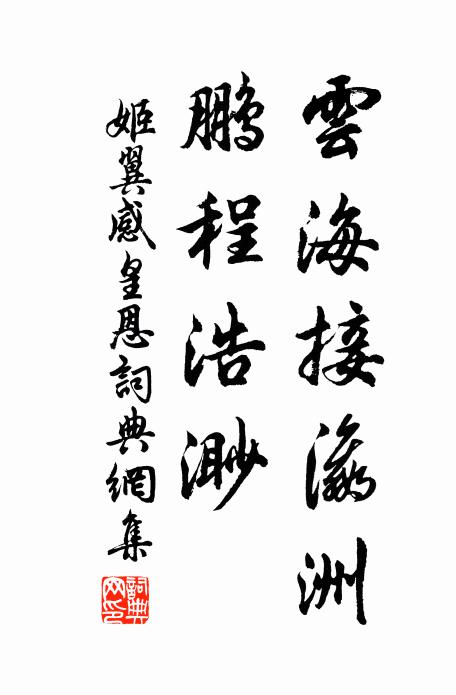 雲海接瀛洲
鵬程浩渺
姬翼感皇恩詞典網集
詞典網印